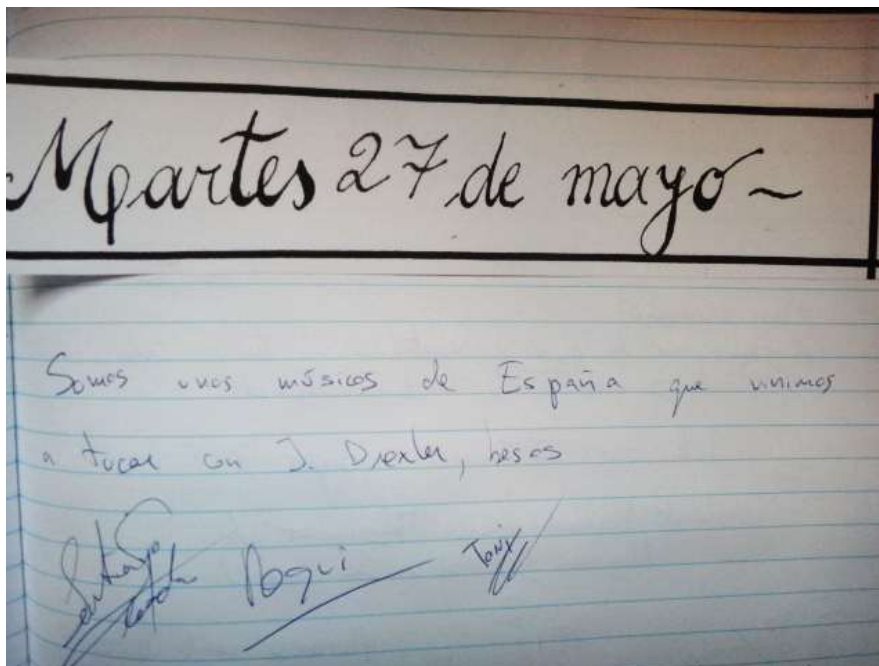 Martes 27 de mayo ~
Somos unos músicos de España que vinimos
a tocar con J. Drexler, besos
Santiago Roqui Toni